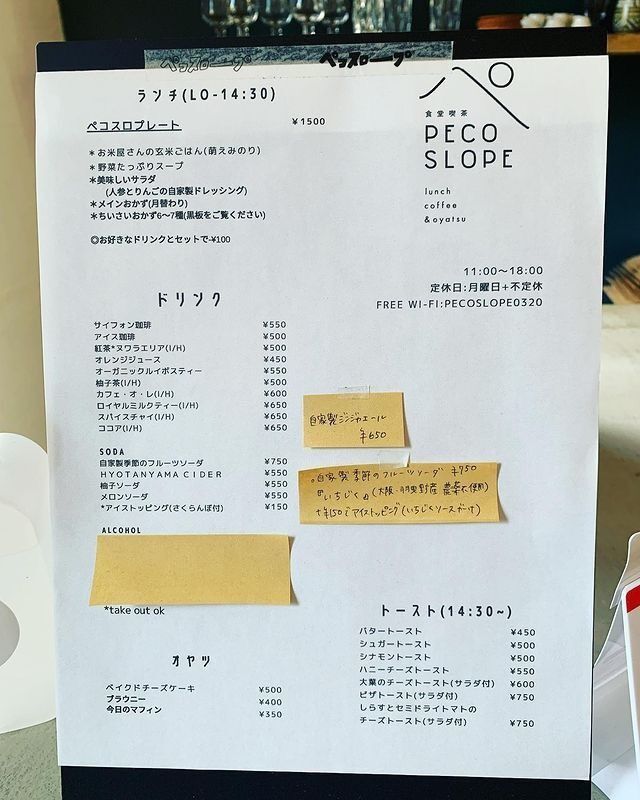 ペコスロープ ペコスロープ
ランチ(LO-14:30)
ペコスロプレート ¥1500
*お米屋さんの玄米ごはん(萌えみのり)
*野菜たっぷりスープ
*美味しいサラダ
(人参とりんごの自家製ドレッシング)
*メインおかず(月替わり)
*ちいさいおかず6〜7種(黒板をご覧ください)
◎お好きなドリンクとセットで-¥100
ペコ
食堂喫茶
PECO
SLOPE
lunch
coffee
&oyatsu
11:00〜18:00
定休日:月曜日+不定休
FREE WI-FI:PECOSLOPE0320
ドリンク
サイフォン珈琲 ¥550
アイス珈琲 ¥500
紅茶*ヌワラエリア(I/H) ¥500
オレンジジュース ¥450
オーガニックルイボスティー ¥550
柚子茶(I/H) ¥500
カフェ・オ・レ(I/H) ¥600
ロイヤルミルクティー(I/H) ¥650
スパイスチャイ(I/H) ¥650
ココア(I/H) ¥650
自家製ジンジャエール
¥650
SODA
自家製季節のフルーツソーダ ¥750
HYOTANYAMA CIDER ¥550
柚子ソーダ ¥550
メロンソーダ ¥550
*アイストッピング(さくらんぼ付) ¥150
。自家製季節のフルーツソーダ ¥750
『いちじく』(大阪・羽曳野産 農薬不使用)
+¥150でアイストッピング(いちじくソースがけ)
ALCOHOL
*take out ok
オヤツ
ベイクドチーズケーキ ¥500
ブラウニー ¥400
今日のマフィン ¥350
トースト(14:30~)
バタートースト ¥450
シュガートースト ¥500
シナモントースト ¥500
ハニーチーズトースト ¥550
大葉のチーズトースト(サラダ付) ¥600
ピザトースト(サラダ付) ¥750
しらすとセミドライトマトの
チーズトースト(サラダ付) ¥750